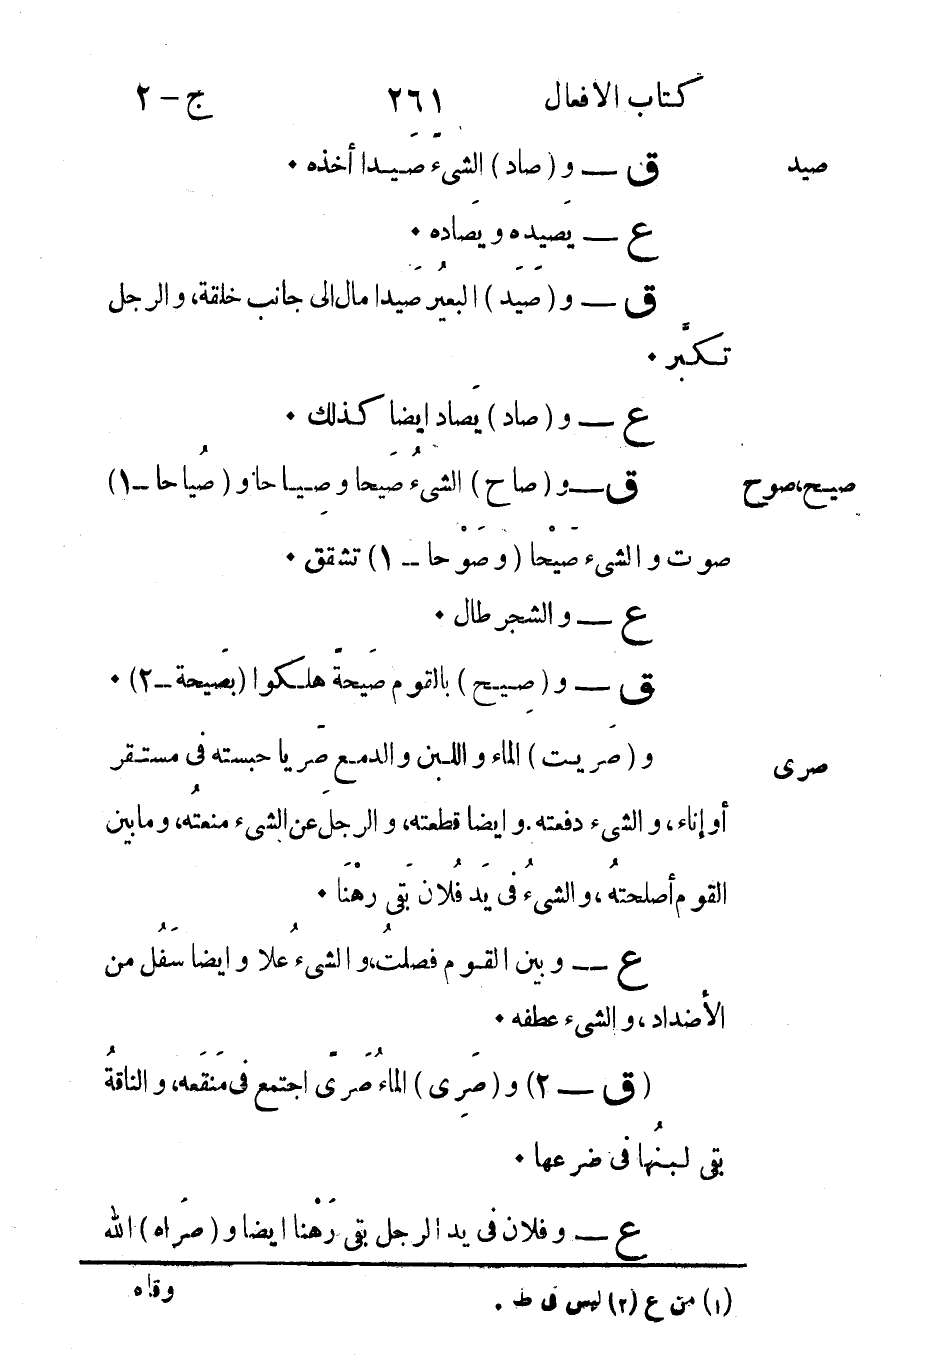 كتاب الافعال ٢٦١ ج - ٢
صيد ق — و (صاد) الشىء صَيدا أخذه •
ع — يَصيده ويَصاده •
ق — و (صَيَد) البعيُر صَيدا مال الى جانب خلقة، والرجل
تكبَّر •
ع — و (صاد) يَصاد ايضا كذلك •
صيح، صوح ق — و (صاح) الشىءُ صَيحا وصِياحا و (صُياحا – ١)
صوت والشىء صَيْحا (وصَوْحا – ١) تشقق •
ع — والشجر طال •
ق — و (صِيح) بالقوم صَيحةً هلكوا (بصَيحة – ٢) •
صرى و (صَريت) الماء واللبن والدمع صَريا حبسته فى مستقر
أوإناء، والشىء دفعته. وايضا قطعته، والرجلَ عن الشىء منعتُه، ومابين
القوم أصلحتهُ، والشىءُ فى يَد فُلان بَقى رَهْنَا •
ع — وبين القوم فصلتُ، والشىءُ علا وايضا سَفُل من
الأضداد، والشىء عطفه •
(ق — ٢) و (صَرِى) الماءُ صَرًى اجتمع فى مَنقَعه، والناقةُ
بقى لبنُها فى ضرعها •
ع — وفلان فى يد الرجل بقى رَهْنا ايضا و (صرَاه) الله
وقاه
(١) من ع (٢) ليس فى ط •